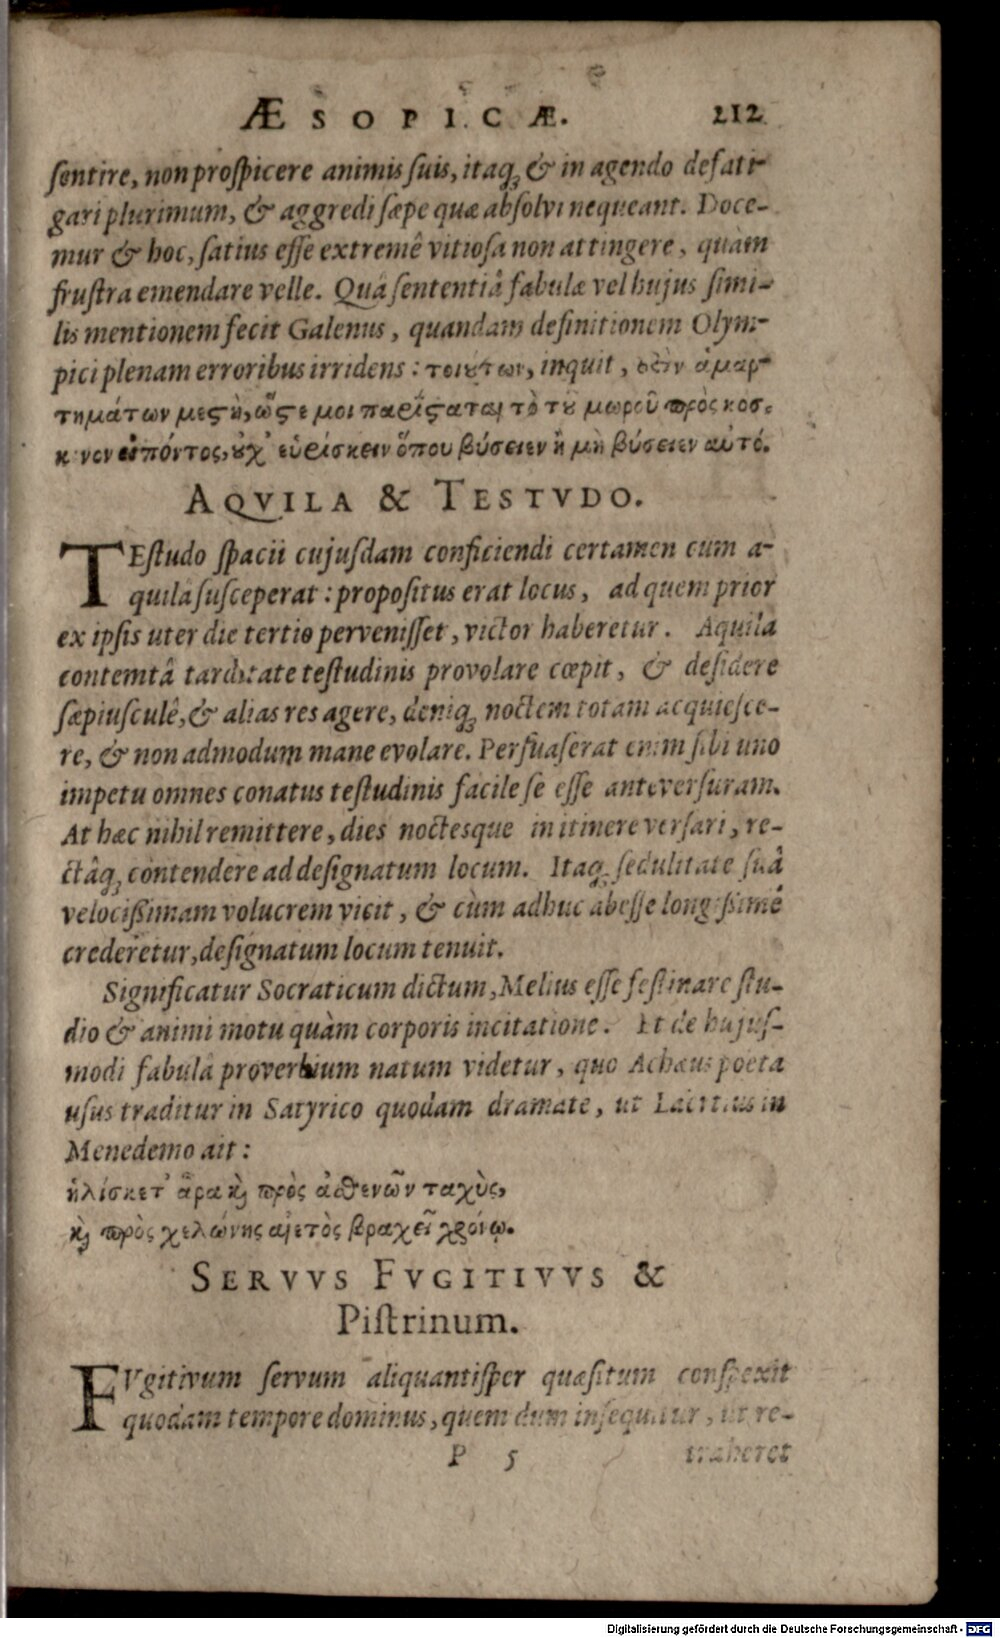 ÆSOPICÆ. 212
sentire, non prospicere animis suis, itaq; & in agendo defati-
gari plurimum, & aggredi sæpe quæ absolvi nequeant. Doce-
mur & hoc, satius esse extremè vitiosa non attingere, quàm
frustra emendare velle. Quâ sententiâ fabulæ vel hujus simi-
lis mentionem fecit Galenus, quandam definitionem Olym-
pici plenam erroribus irridens: τοιούτων, inquit, ἁμαρ-
τημάτων μεστὴ, ὥστε μοι παρίσταται τὸ τοῦ μωροῦ πρὸς κοσ-
κινον εἰπόντος, οὐχ' εὑρίσκειν ὅπου βύσειεν ἢ μὴ βύσειεν αὐτό.
AQVILA & TESTVDO.
TEstudo spacii cujusdam conficiendi certamen cum a-
quila susceperat: propositus erat locus, ad quem prior
ex ipsis uter die tertio pervenisset, victor haberetur. Aquila
contemtâ tarditate testudinis provolare cœpit, & desidere
sæpiusculê, & alias res agere, deniq; noctem totam acquiesce-
re, & non admodum mane evolare. Persuaserat enim sibi uno
impetu omnes conatus testudinis facile se esse anteversuram.
At hæc nihil remittere, dies noctesque in itinere versari, re-
ctâq; contendere ad designatum locum. Itaq; sedulitate suâ
velocissimam volucrem vicit, & cùm adhuc abesse longissimè
crederetur, designatum locum tenuit.
Significatur Socraticum dictum, Melius esse festinare stu-
dio & animi motu quàm corporis incitatione. Et de hujus-
modi fabulâ proverbium natum videtur, quo Achæus poëta
usus traditur in Satyrico quodam dramate, ut Laertius in
Menedemo ait:
ἡλίσκετ' ἆρα καὶ πρὸς ἀσθενῶν ταχὺς,
καὶ πρὸς χελώνης αἰετὸς βραχεῖ χρόνῳ.
SERVVS FVGITIVVS &
Pistrinum.
FVgitivum servum aliquantisper quæsitum conspexit
quodam tempore dominus, quem dum insequitur, ut re-
P 5 traheret
Digitalisierung gefördert durch die Deutsche Forschungsgemeinschaft - DFG